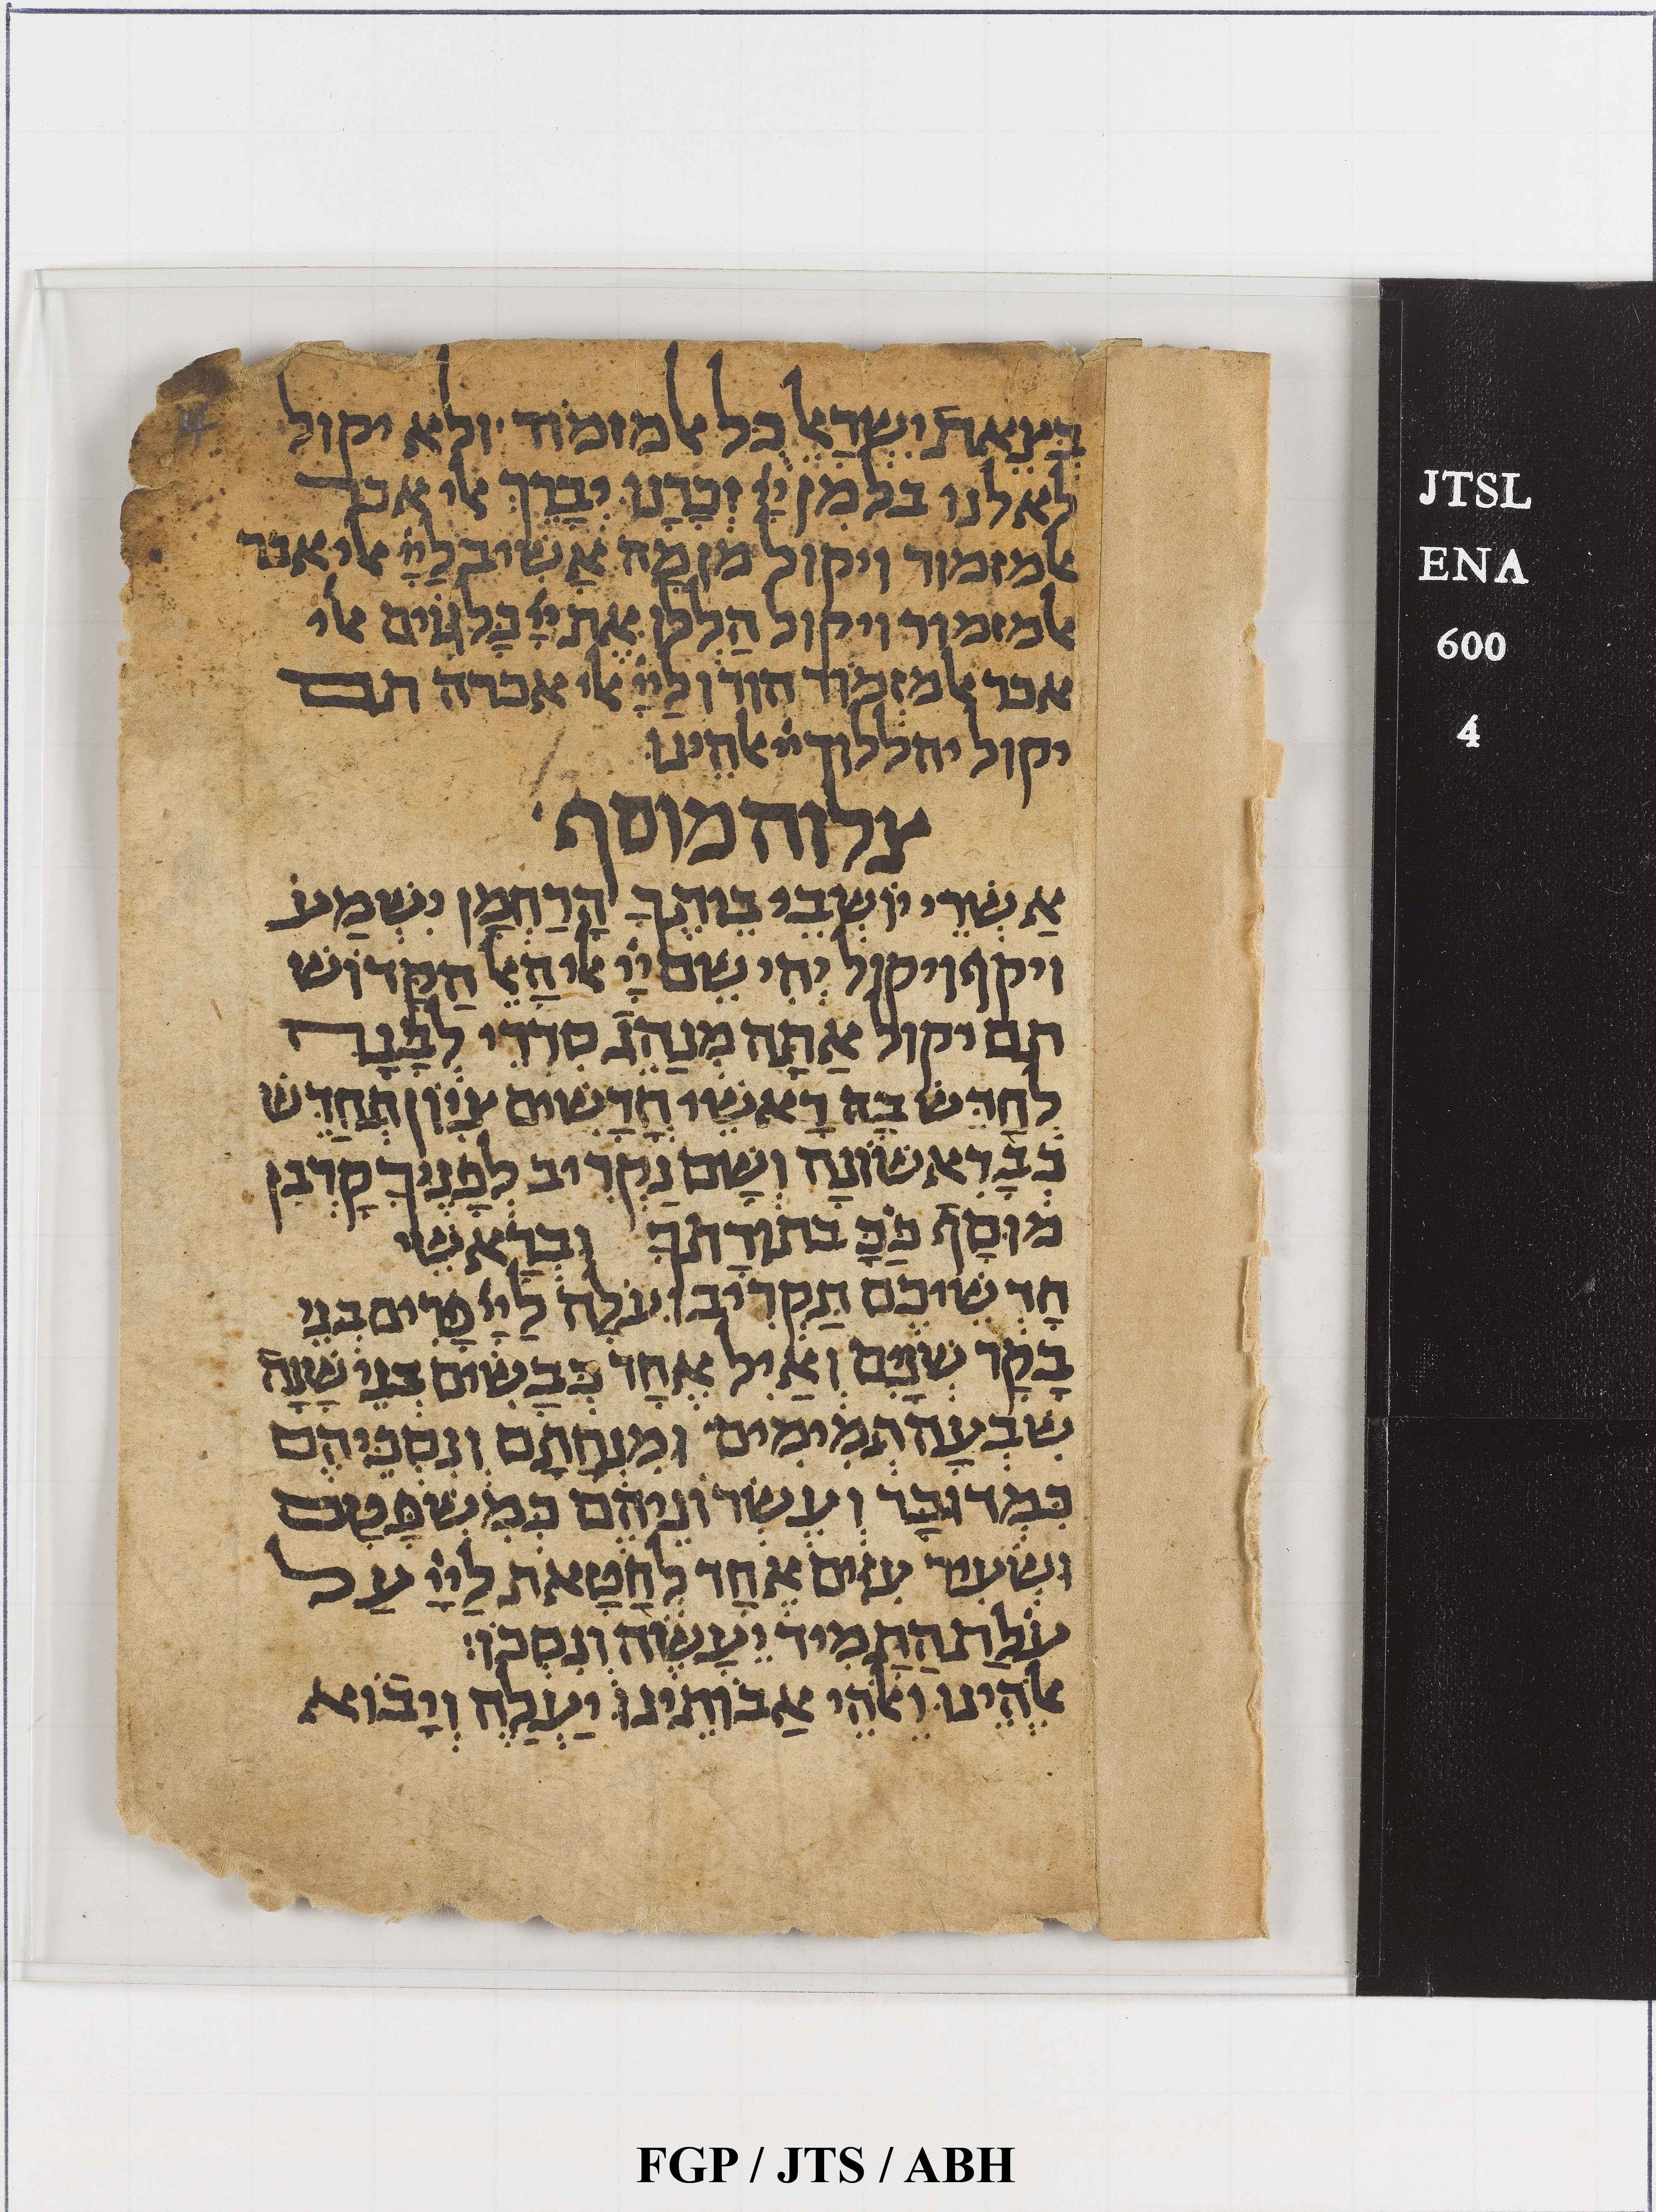 בְּצֵאת יִשְׂרָאֵל כל אלמזמור ולא יקול
לא לנו בל מן יְיָ זְכָרָנוּ יְבָרֵךְ אלי אכר
אלמזמור ויקול מן מָה אָשִׁיב לַיְיָ אלי אכר
אלמזמור ויקול הַלְלוּ אֶת יְיָ כָּל גּוֹיִם אלי
אכר אלמזמור הודו לַיְיָ אלי אכרה תם
יקול יהללוך ייי אלהינו
צלוה מוסף
אַשְׁרֵי יוֹשְׁבֵי בֵיתֶךָ הָרַחְמָן יִשְׁמַע
ויקף ויקול יְהִי שֵׁם יְיָ אלי הָאֵל הַקָּדוֹשׁ
תם יקול אַתָּה מִנְהַג סִדְרֵי לִבְּנָהּ
לְחַדֵּשׁ בָּהּ רָאשֵׁי חֳדָשִׁים צִיּוֹן תְּחַדֵּשׁ
כְּבָרִאשׁוֹנָה וְשָׁם נַקְרִיב לְפָנֶיךָ קָרְבַּן
מוּסָף כַּכָּ בתורָתךָ וּבְרָאשֵׁי
חָדְשֵׁיכֶם תַּקְרִיבוּ עֹלָה לַיְיָ פָּרִים בְּנֵי
בָקָר שְׁנַיִם וְאַיִל אֶחָד כְּבָשִׂים בְּנֵי שָׁנָה
שִׁבְעָה תְּמִימִים וּמִנְחָתָם וְנִסְכֵּיהֶם
כִּמְדוּבָּר וְעֶשְׂרוֹנֵיהֶם כְּמִשְׁפָּטָם
וּשְׂעִיר עִזִּים אֶחָד לְחַטָּאת לַיְיָ עַל
עֹלַת הַתָּמִיד יֵעָשֶׂה וְנִסְכּוֹ:
אֱלֹהֵינוּ וֵאלֹהֵי אֲבוֹתֵינוּ יַעְלֶה וְיָבוֹא
JTSL
ENA
600
4
FGP / JTS / ABH